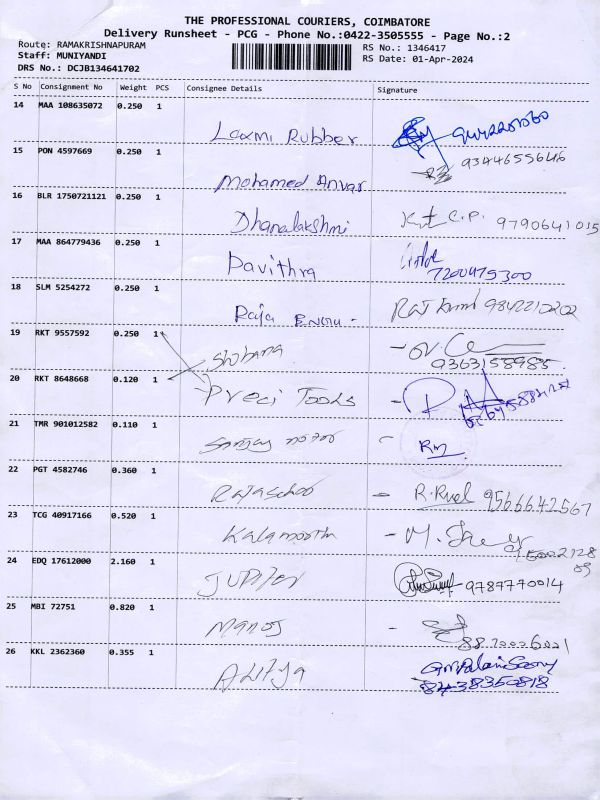 THE PROFESSIONAL COURIERS, COIMBATORE
Delivery Runsheet - PCG - Phone No.:0422-3505555 - Page No.:2
Route: RAMAKRISHNAPURAM RS No.: 1346417
Staff: MUNIYANDI RS Date: 01-Apr-2024
DRS No.: DCJB134641702
S No Consignment No Weight PCS Consignee Details Signature
14 MAA 108635072 0.250 1
Laxmi Rubber
15 PON 4597669 0.250 1 9344655646
Mohamed Anvar
16 BLR 1750721121 0.250 1
Dhanalakshmi C.P. 9790641015
17 MAA 864779436 0.250 1
Pavithra 7200475300
18 SLM 5254272 0.250 1
Raja 9842210202
19 RKT 9557592 0.250 1
Shobana 9363158985
20 RKT 8648668 0.120 1
Preci Tools
21 TMR 901012582 0.110 1
22 PGT 4582746 0.360 1
9566642567
23 TCG 40917166 0.520 1
24 EDQ 17612000 2.160 1
JUPITER 9787770014
25 MBI 72751 0.820 1
Manoj
26 KKL 2362360 0.355 1
Aditya 8438350818